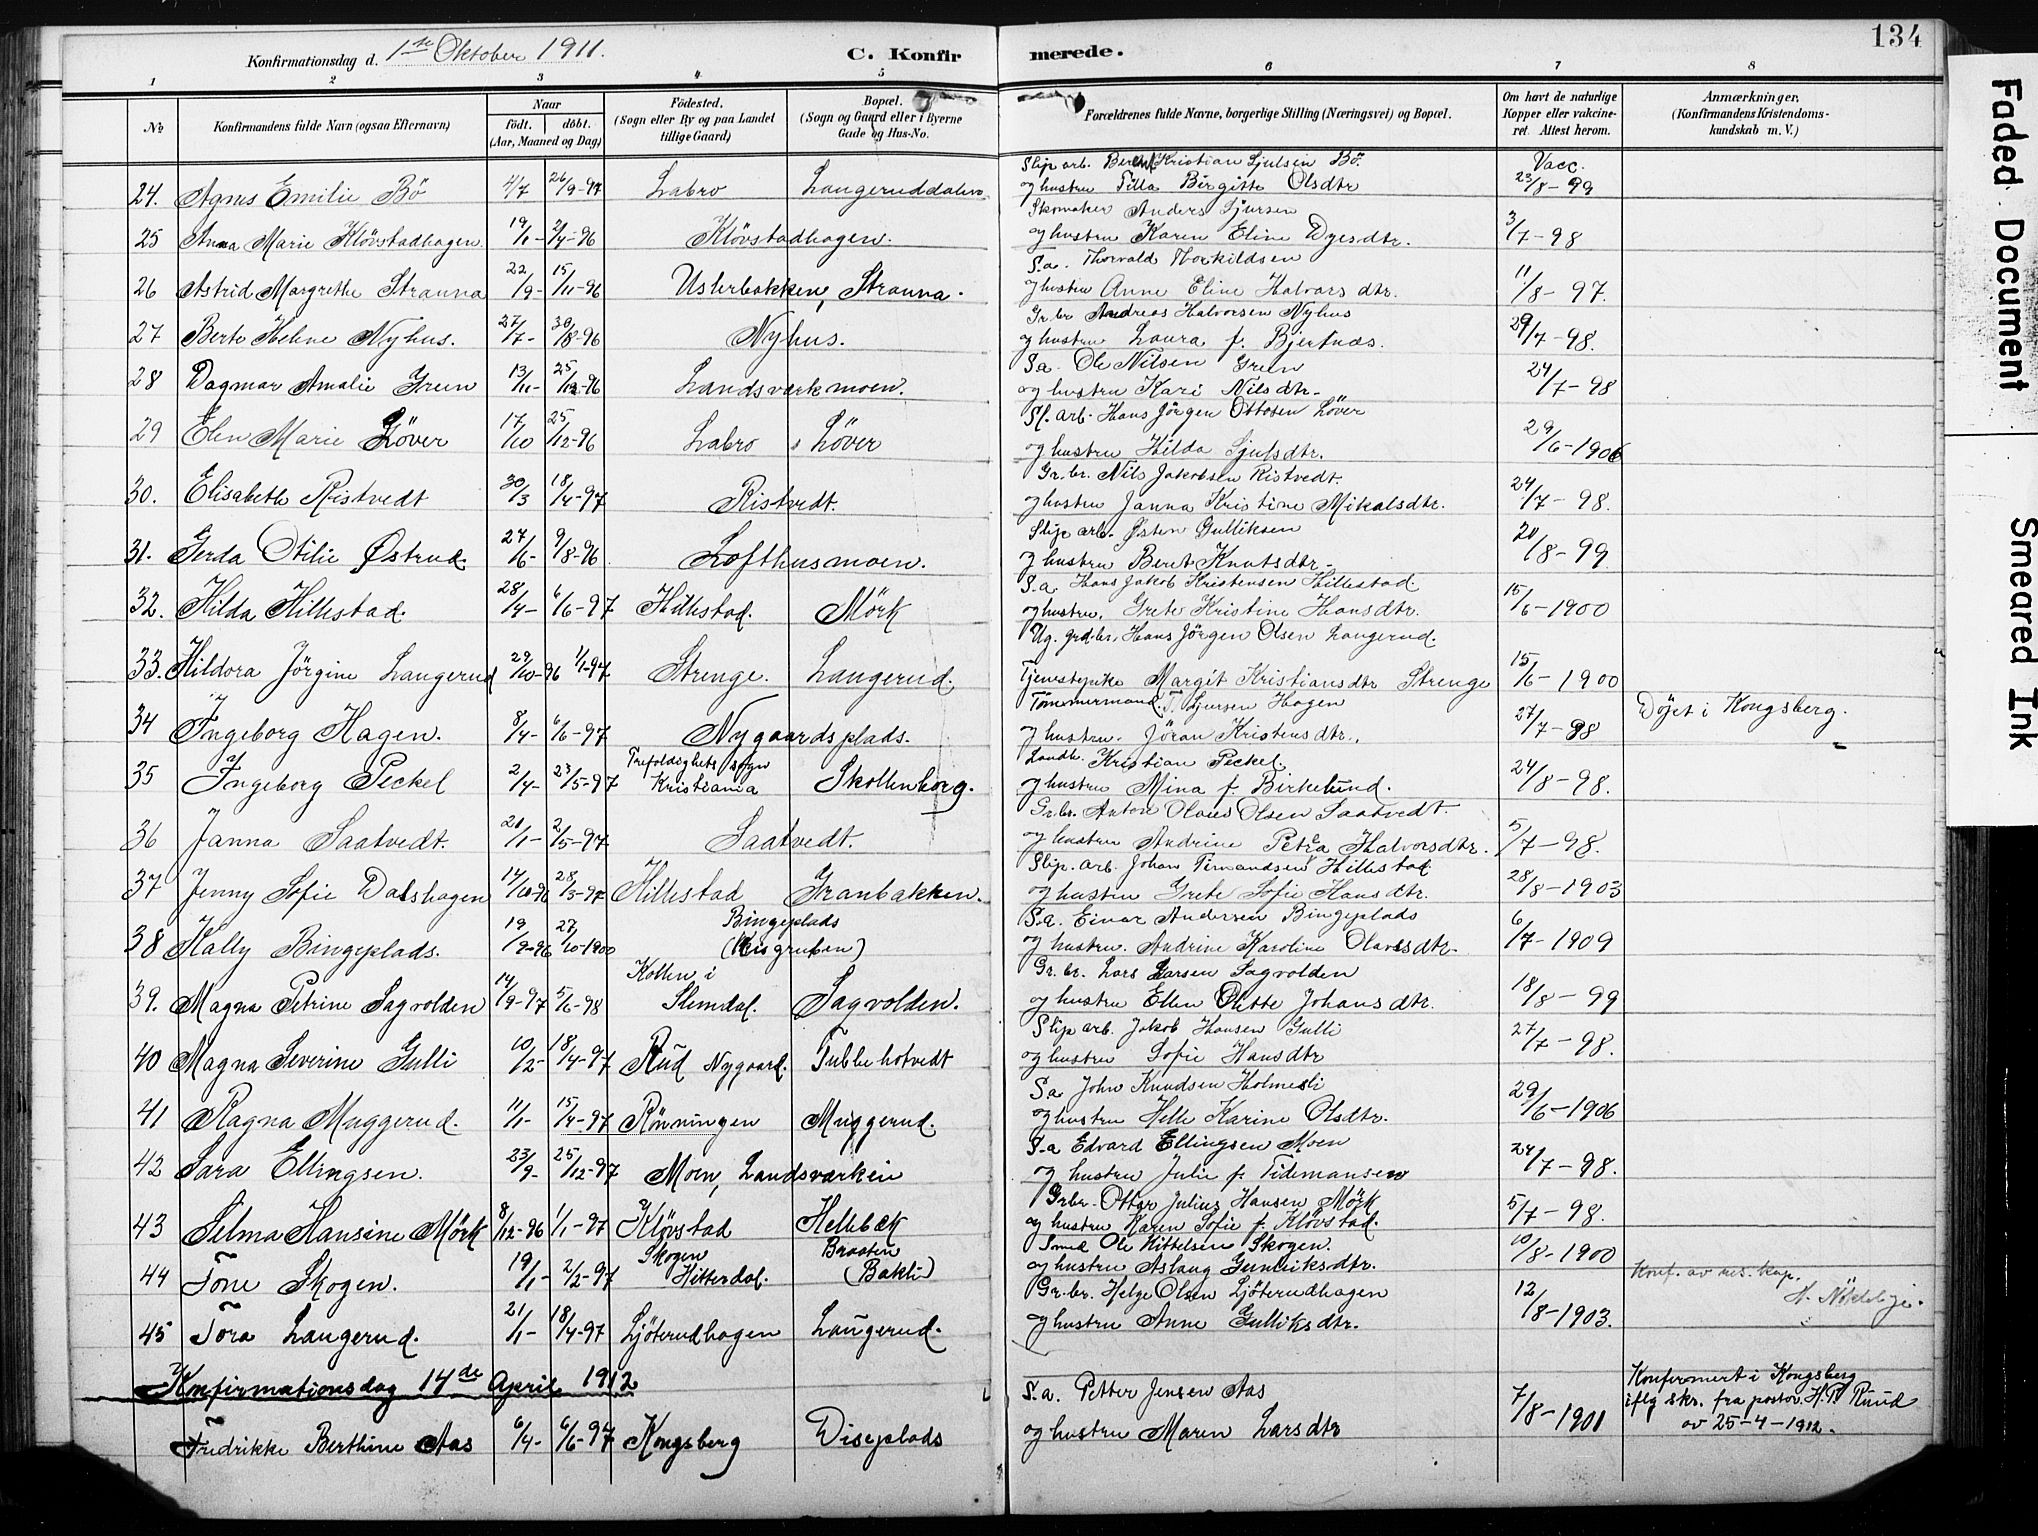 134
Konfirmationsdag d. 1ste Oktober 1911.
C. Konfirmerede.
1 2 3 4 5 6 7 8
No.
Konfirmandens fulde Navn (ogsaa Efternavn)
Naar
født. døbt.
(Aar, Maaned og Dag)
Fødested.
(Sogn eller By og paa Landet
tillige Gaard)
Bopæl.
(Sogn og Gaard eller i Byerne
Gade og Hus-No.
Forældrenes fulde Navne, borgerlige Stilling (Næringsvei) og Bopæl.
Om havt de naturlige
Kopper eller vakcine-
ret. Attest herom.
Anmærkninger.
(Konfirmandens Kristendoms-
kundskab m. V.)
Slip arb. Kristian Sjulsen Bö. Vacc.
24. Agnes Emilie Bö 4/7 26/9-97 Labro Langeruddalen og hustru Tilla Birgitte Olsdtr 23/8-99
Skomaker Anders Sjursen
25 Anna Marie Klövstadhagen 19/1- 2/4-96 Klövstadhagen. og hustru Karen Eline Dyesdtr. 3/7-98
S.a. Thorvald Torkildsen
26 Astrid Margrethe Stranna 22/9- 15/11-96 Uslerbakken, Stranna. og hustru Anne Eline Halvorsdtr. 11/8-97.
Gr. br Andreas Halvorsen Nyhus
27 Berte Helene Nyhus. 27/7- 30/8-96 Nyhus. og hustru Laura f. Bjertnæs. 29/7-98.
S.a. Ole Nilsen Gren
28 Dagmar Amalie Green 13/11- 25/12-96 Landsværkmoen. og hustru Kari Nilsdtr. 24/7-98
Sl. arb. Hans Jörgen Ottosen Löver
29 Elen Marie Löver 17/10 25/12-96 Labro Löver og hustru Hilda Sjulsdtr. 29/6-1906
Gr. br. Nils Jakobsen Ristvedt.
30. Elisabeth Ristvedt 30/3 18/4-97 Ristvedt. og hustru Janna Kristine Mikalsdtr. 24/7-98.
Slip arb. Østen Gulliksen
31. Gerda Otilie Østrud 27/6- 9/8-96 Lofthusmoen. og hustru Beret Knutsdtr. 20/8-99
S.a. Hans Jakob Kristensen Hillestad
32. Hilda Hillestad. 28/4- 6/6-97 Hillestad. Mörk og hustru. Grete Kristine Hansdtr. 15/6-1900
Ug. grd.br. Hans Jörgen Olsen Langerud.
33. Hildora Jörgine Langerud 29/10-96 1/1-97 Strenge. Langerud. Tjenestepike Margit Kristiansdtr Strenge 15/6-1900
Tömmermand. T. Sjursen Hagen
34 Ingeborg Hagen. 8/4- 6/6-97 Nygaardsplads. og hustru. Jöran Kristensdtr. 27/7-98 Döjet i Kongsberg.
Trefoldighets sogn Landh. Kristian Peckel.
35 Ingeborg Peckel 2/4- 23/5-97 Kristiania Skollenborg. og hustru Mina f. Birkelund. 24/8-98.
Gr. br. Anton Olaus Olsen Saatvedt.
36 Janna Saatvedt. 21/1- 2/5-97 Saatvedt. og hustru Andrine Petra Halvorsdtr. 5/7-98.
Slip. arb. Johan Hillestad
37 Jenny Sofie Dalshagen 14/10-96 28/3-97 Hillestad Granbakken. og hustru Grete Sofie Hansdtr. 28/8-1903
Bingeplads S.a. Einar Andersen Bingeplads
38 Kally Bingeplads. 19/9-96 27/10-1900 (Kisgruben) og hustru. Andrine Karoline Olavesdtr. 6/7-1909
Kollen i Gr. br. Lars Larsen Sagvolden
39. Magna Petrine Sagvolden 14/9-97 5/6-98 Slemdal. Sagvolden. og hustru Ellen Olette Johansdtr. 18/8-99
Slip arb. Jakob Hansen Gulli
40 Magna Severine Gulli 10/2- 18/4-97 Rud Nygaard. Tubbehotvedt og hustru Sofie Hansdtr 27/7-98.
S.a John Knudsen Holmesli
41 Ragna Muggerud. 11/1- 15/4-97 Rönningen Muggerud. og hustru Helle Karine Olsdtr. 29/6-1906
S.a Edvard Ellingsen Moen
42 Sara Ellingsen. 23/9- 25/12-97 Moen, Landsværkein og hustru Julie f. Tidemansen 24/7-98.
Grbr. Otter Julius Hansen Mörk
43 Selma Hansine Mörk 8/12-96 1/1-97 Klövstad Hellebæk og hustru Karen Sofie f. Klövstad. 5/7-98.
Skogen Braaten Smed Ole Kittelsen Skogen. 10/8-1900
44 Tone Skogen. 19/1- 2/2-97 Hitterdal. (Bakli) og hustru Aslaug Gunleiksdtr. Konf. av res. kap.
Gr. br. Helge Olsen Ljöterudhagen 12/8-1903.
45 Tora Langerud. 21/1- 18/4-97 Ljöterudhagen Langerud. og hustru Anne Gulliksdtr.
Konfirmationsdag 14de April 1912
S.a. Petter Jensen Aas Konfirmert i Kongsberg
Fredrikke Berthine Aas 6/4- 6/6-97 Kongsberg Diseplads og hustru Maren Larsdtr 7/8-1901 iflg skr. fra pastor H.P. Ruud
av 25-4-1912.
Faded Document
Smeared Ink